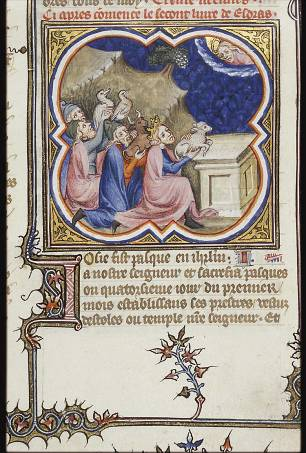 Ci apres cōmence le second liure de Esdras
Osie fist pasque en ihrlm
a nostre seigneur et sacrefia pasques
ou quatorzieme iour du premier
mois establissans ses prestres
destoles ou temple nr̄e seigneur. Et